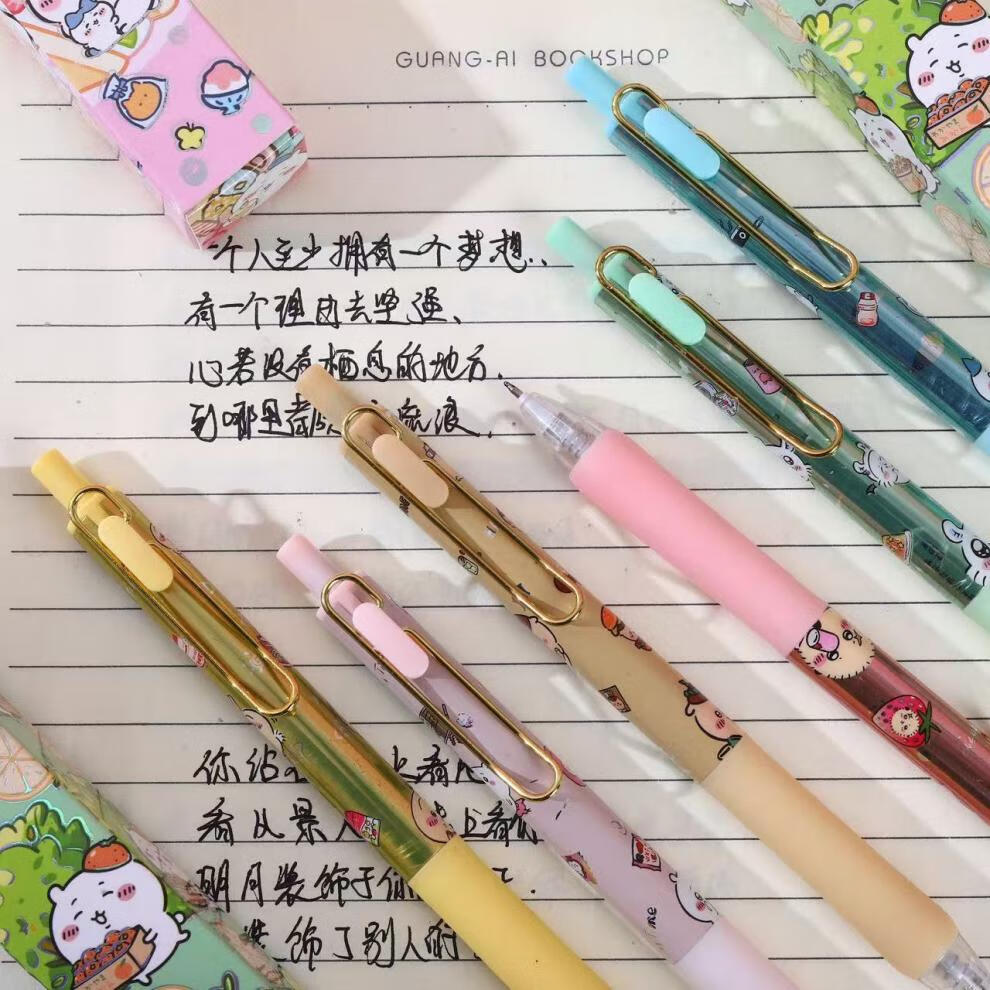 GUANG-AI BOOKSHOP
一个人至少拥有一个梦想..
有一个理由去坚强、
心若没有栖息的地方.
到哪里都 流浪.
你站 上看
看 风景人 上看你
明月装饰于你
装饰了别人的
me